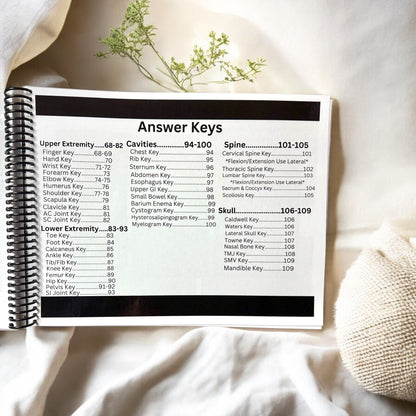 Answer Keys
Upper Extremity.....68-82
Finger Key..........68-69
Hand Key..............70
Wrist Key...........71-72
Forearm Key...........73
Elbow Key...........74-75
Humerus Key...........76
Shoulder Key........77-78
Scapula Key...........79
Clavicle Key..........81
AC Joint Key..........81
SC Joint Key..........82
Lower Extremity.....83-93
Toe Key...............83
Foot Key..............84
Calcaneus Key.........85
Ankle Key.............86
Tib/Fib Key...........87
Knee Key..............88
Femur Key.............89
Hip Key...............90
Pelvis Key..........91-92
SI Joint Key..........93
Cavities............94-100
Chest Key.............94
Rib Key...............95
Sternum Key...........96
Abdomen Key...........97
Esophagus Key.........97
Upper GI Key..........98
Small Bowel Key.......98
Barium Enema Key......99
Cystogram Key.........99
Hysterosalpingogram Key...99
Myelogram Key........100
Spine..............101-105
Cervical Spine Key...101
*Flexion/Extension Use Lateral*
Thoracic Spine Key...102
Lumbar Spine Key.....103
*Flexion/Extension Use Lateral*
Sacrum & Coccyx Key..104
Scoliosis Key........105
Skull..............106-109
Caldwell Key.........106
Waters Key...........106
Lateral Skull Key....107
Towne Key............107
Nasal Bone Key.......108
TMJ Key..............108
SMV Key..............109
Mandible Key.........109